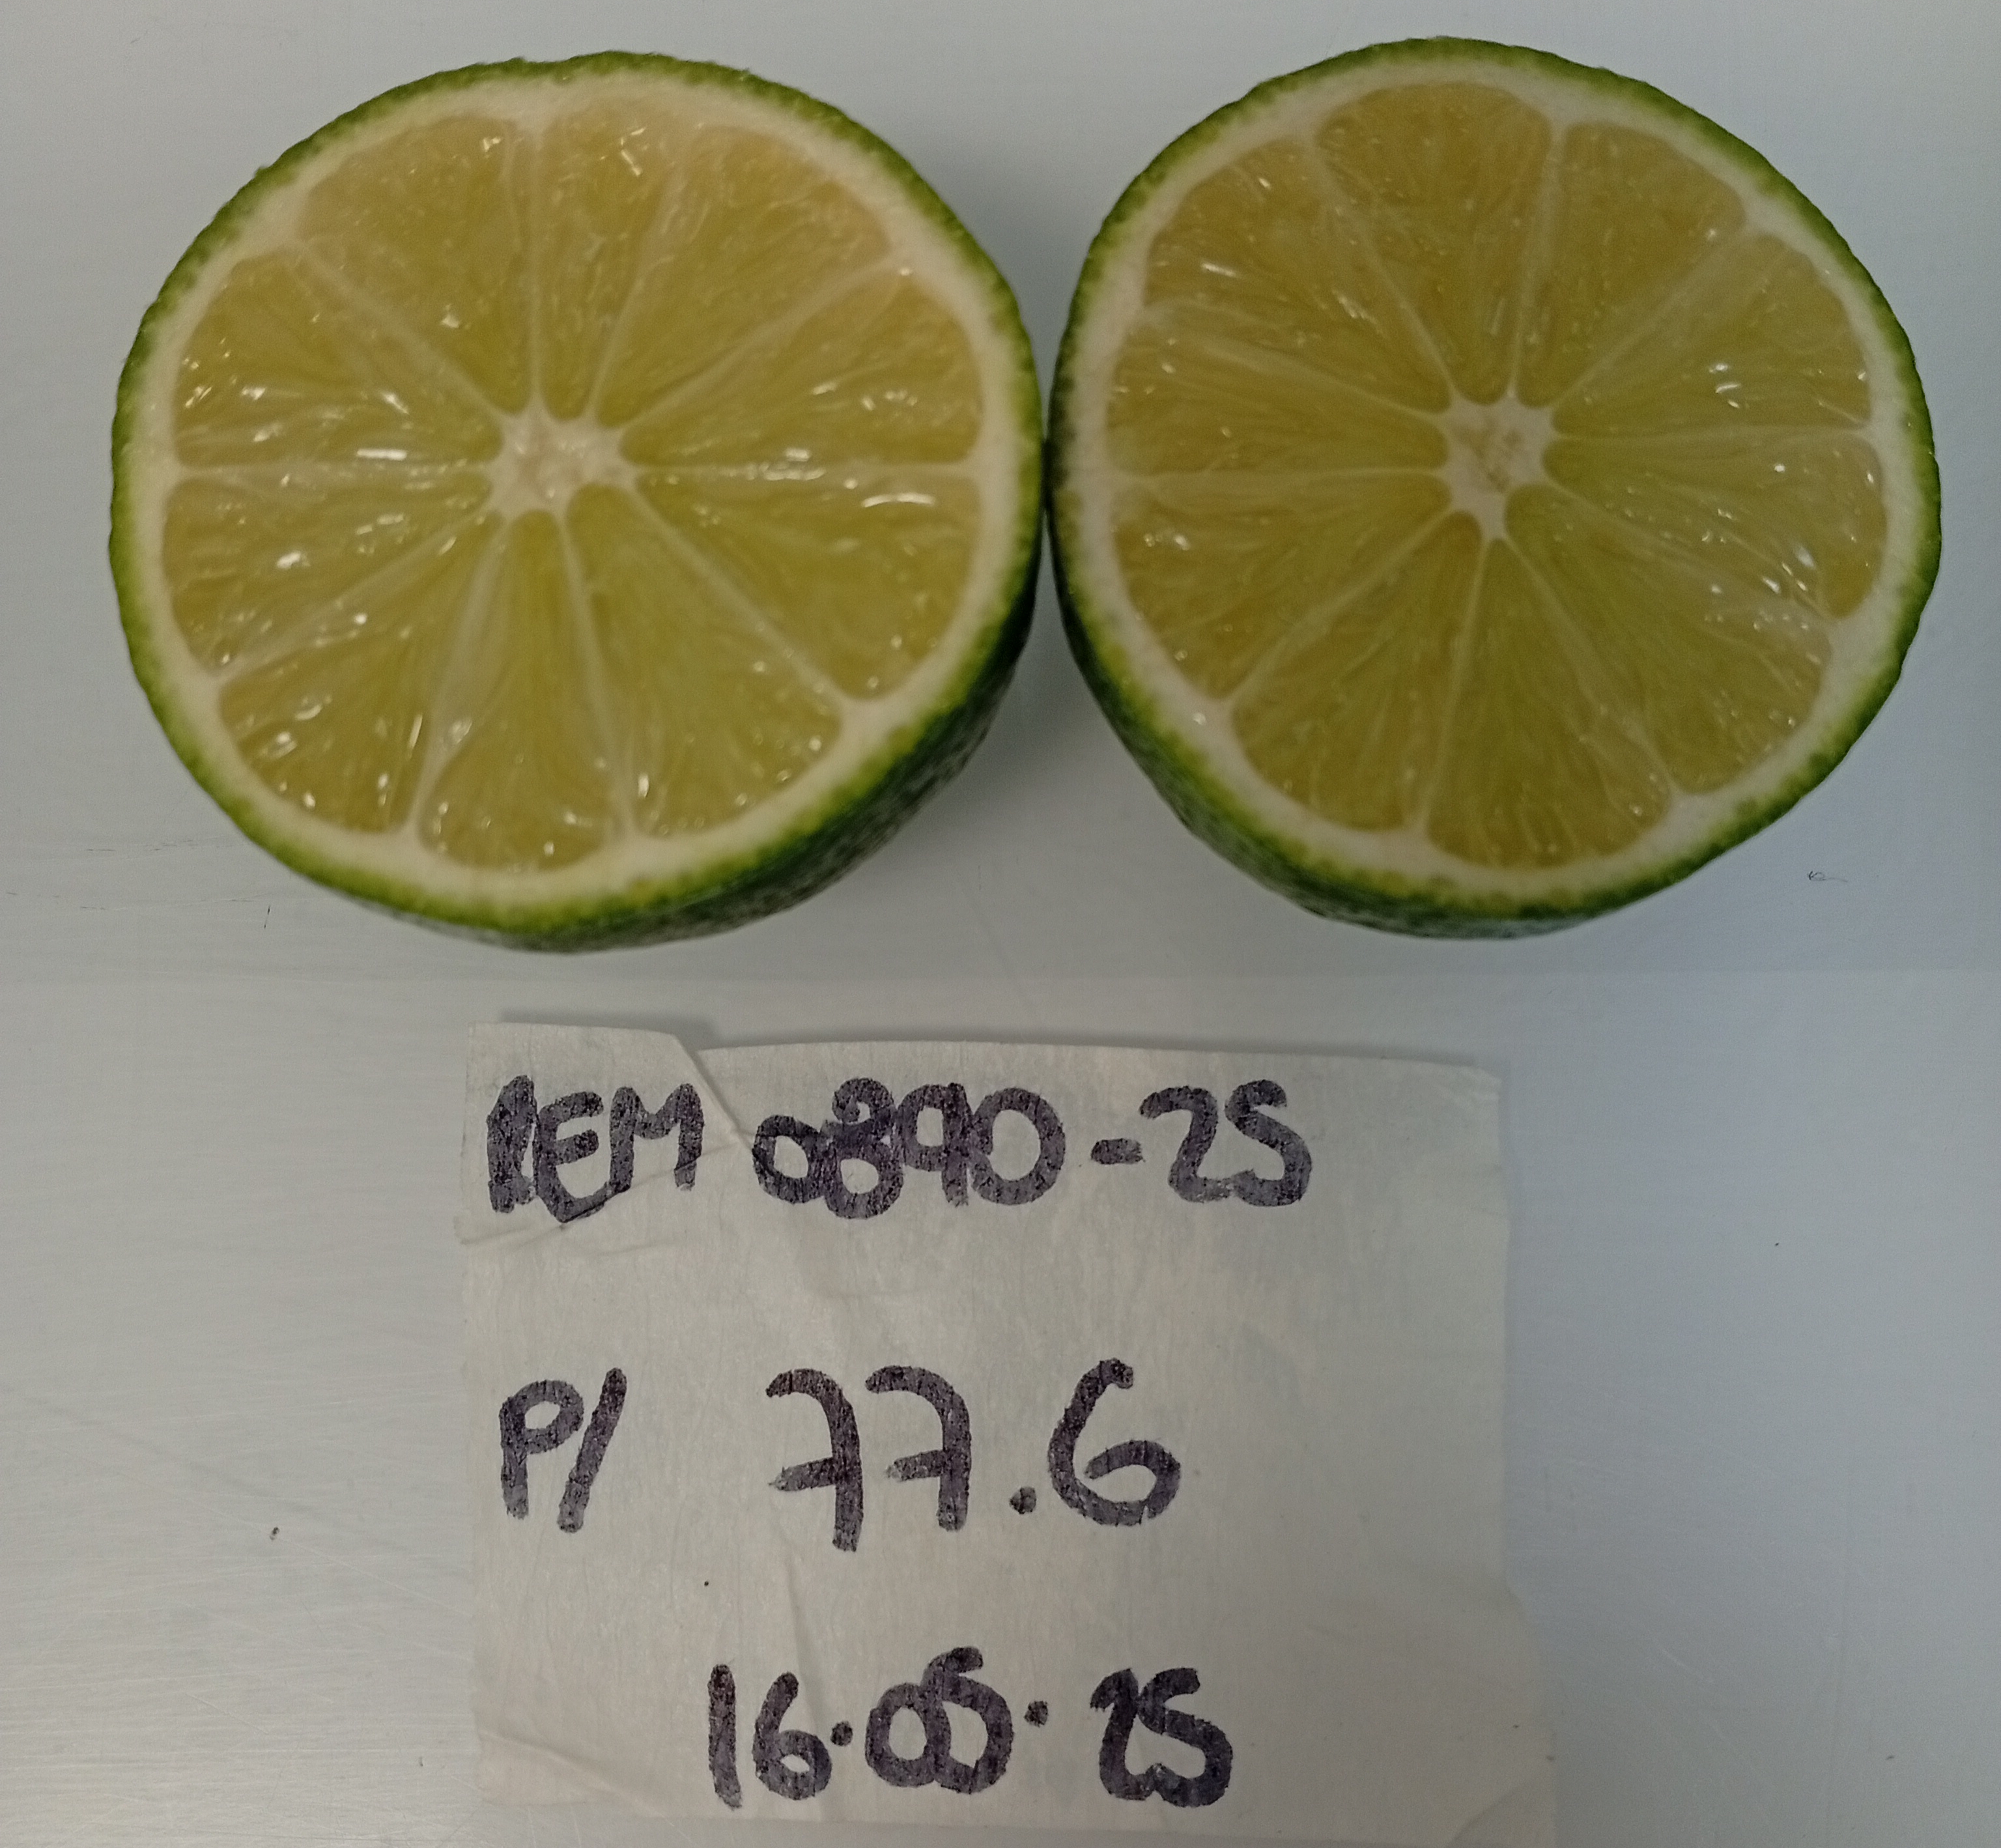 REM 0890-25
P/ 77.6
16.05.25